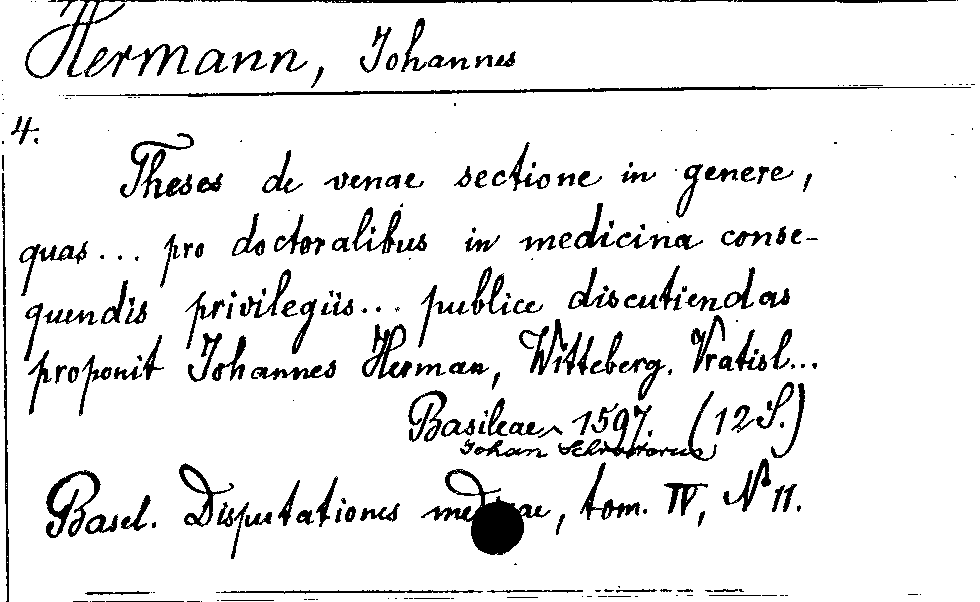 Hermann, Johannes
4.
Theses de venae sectione in genere,
quas... pro doctoralibus in medicina conse-
quendis privilegiis... publice discutiendas
proponit Johannes Herman, Witteberg. Vratisl...
Basileae 1597. (12 S.)
Johan Schroeterus
Basel. Disputationes medicae, tom. IV, No 11.